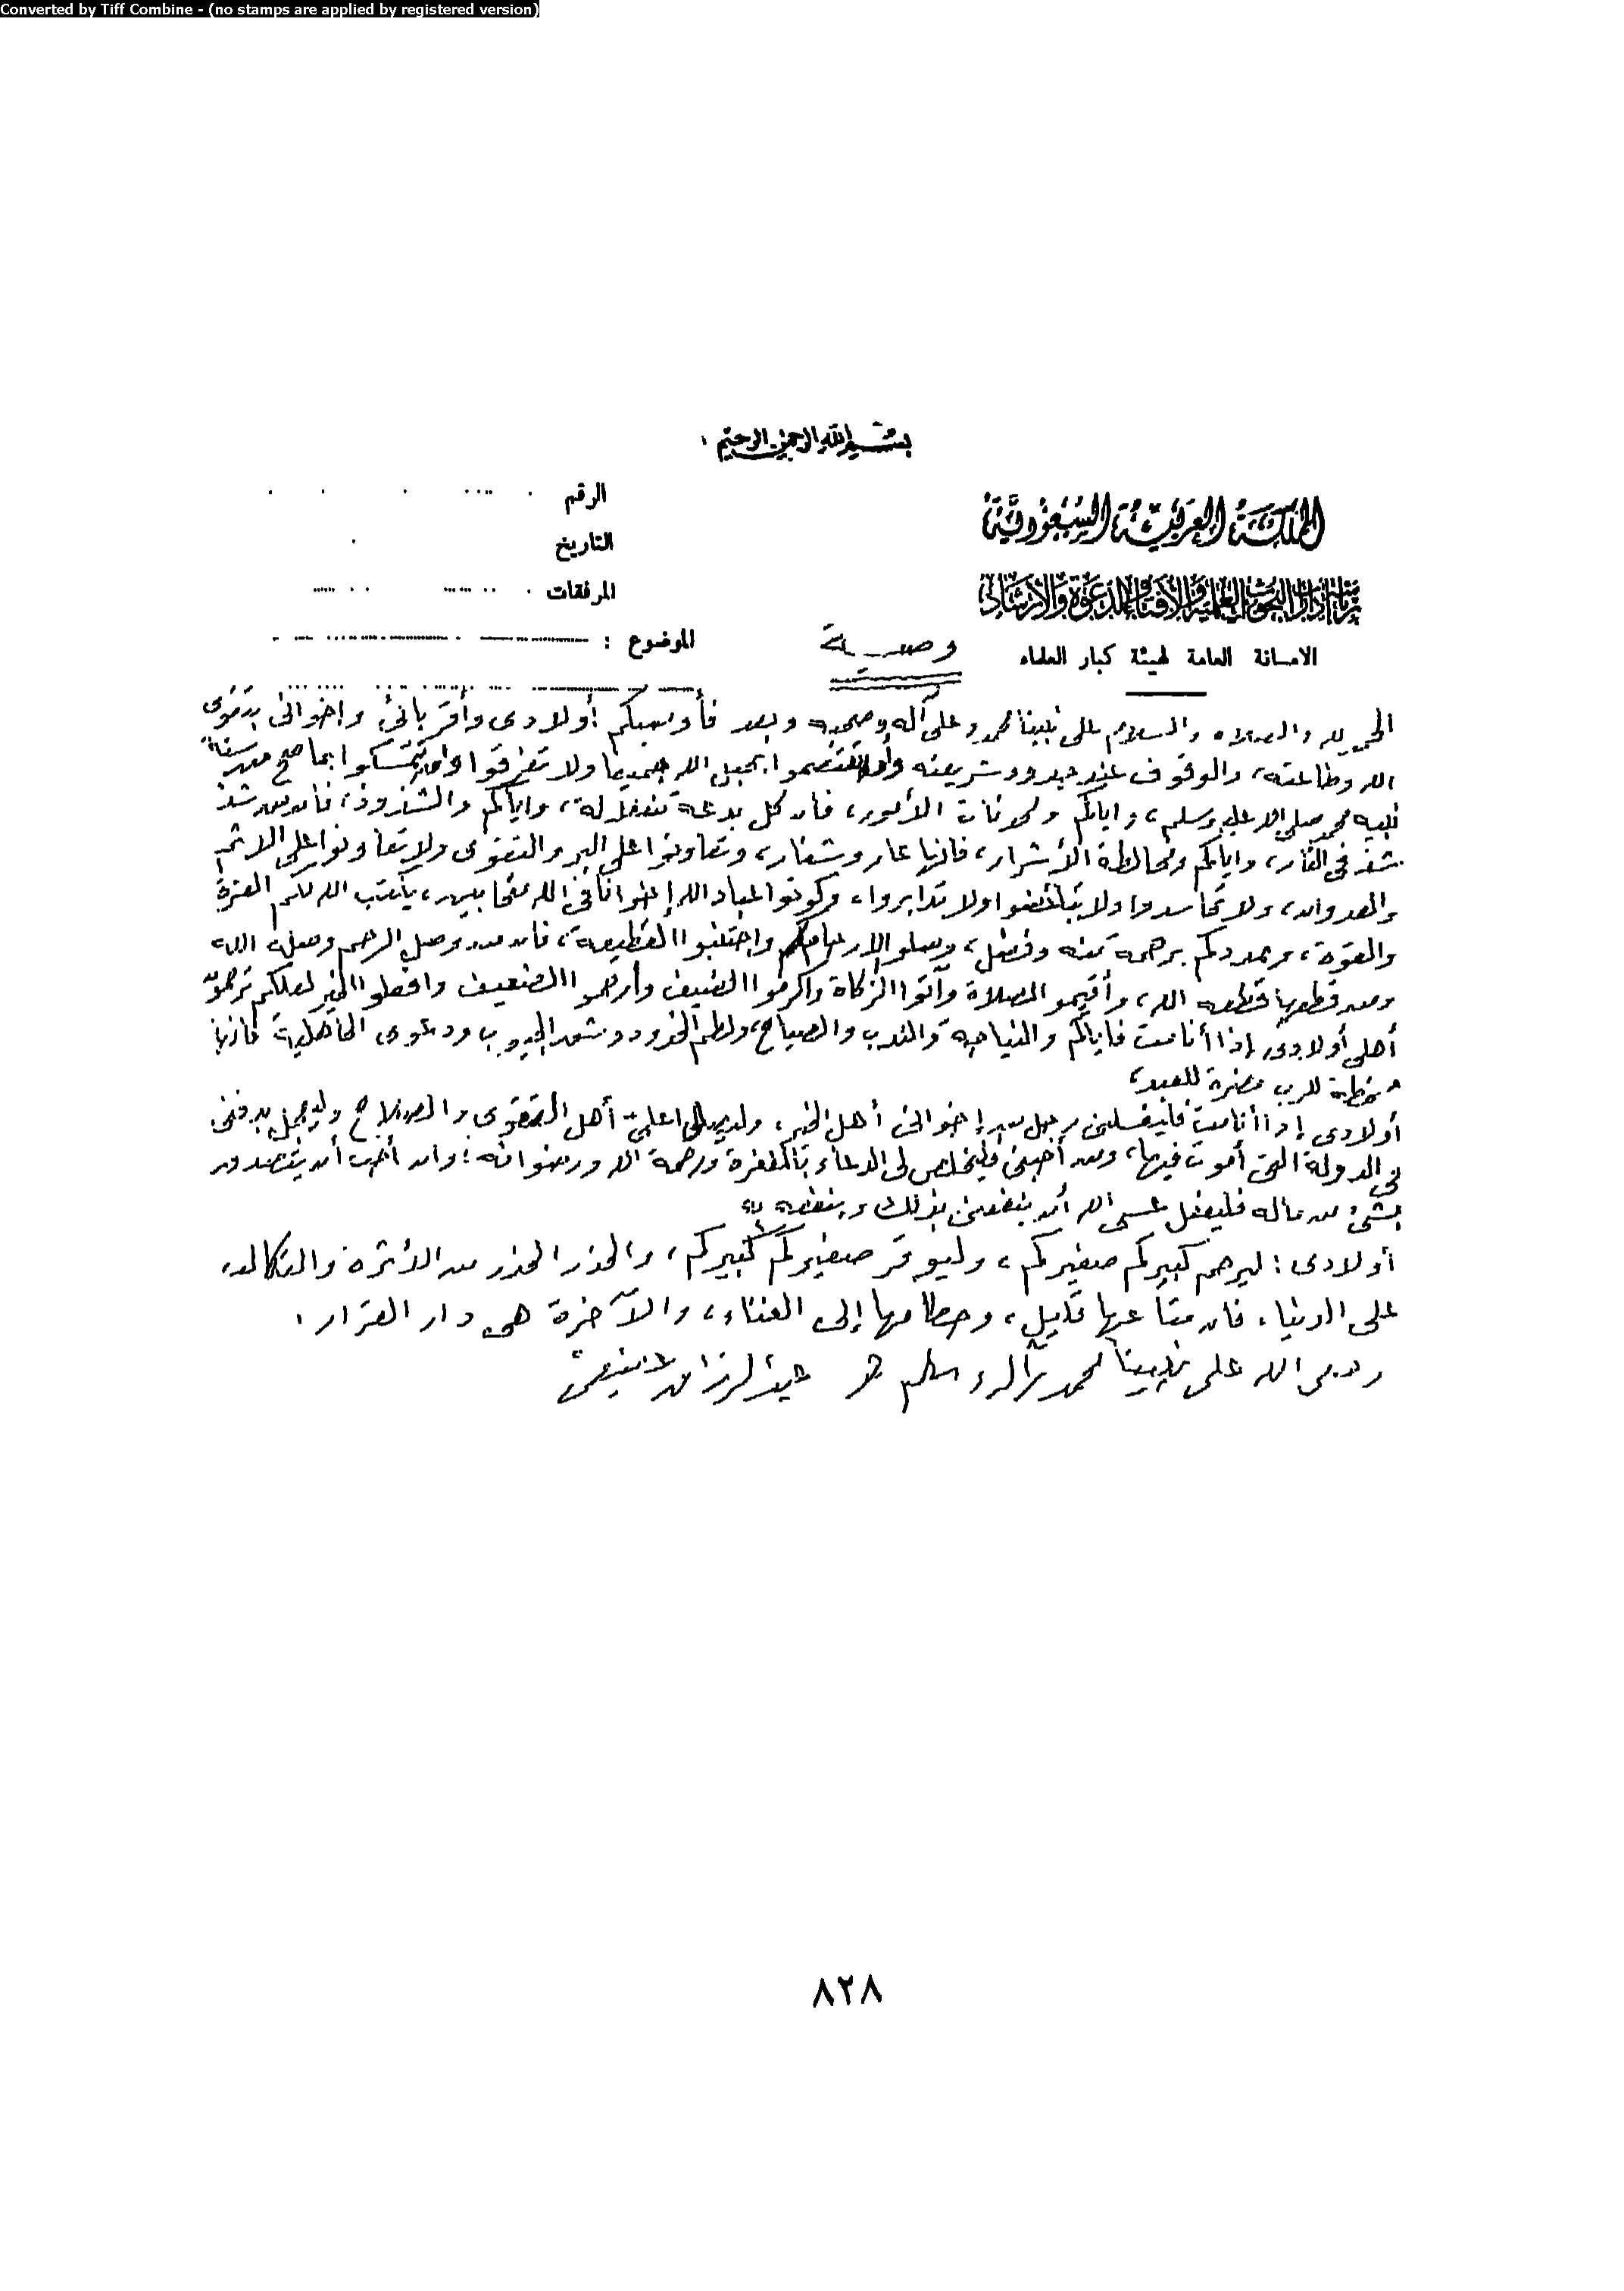 Converted by Tiff Combine - (no stamps are applied by registered version)
بسم الله الرحمن الرحيم
المملكة العربية السعودية
رئاسة إدارات البحوث العلمية والافتاء والدعوة والارشاد
الامانة العامة لهيئة كبار العلماء
الرقم
التاريخ
المرفقات
الموضوع :
وصية
الحمد لله والصلاة والسلام على نبينا محمد وعلى آله وصحبه وبعد فأوصيكم أولادى وأقربائى واخوانى بتقوى
الله وطاعته، والوقوف عند حدود شريعته وأن تعتصموا بحبل الله جميعا ولا تفرقوا وأن تتمسكوا بما صح من سنة
نبيه محمد صلى الله عليه وسلم، واياكم ومحدثات الأمور، فان كل بدعة ضلالة، واياكم والشذوذ، فان من شذ
شذ فى النار، واياكم ومخالطة الأشرار، فانها عار وشنار، وتعاونوا على البر والتقوى ولا تعاونوا على الاثم
والعدوان، ولا تحاسدوا ولا تباغضوا ولا تدابروا، وكونوا عباد الله إخوانا فى الله متحابين، يكتب الله لكم العزة
والقوة، ويمددكم برحمة منه وفضل، وصلوا الارحام واجتنبوا القطيعة، فان من وصل الرحم وصله الله
ومن قطعها قطعه الله، وأقيموا الصلاة وآتوا الزكاة واكرموا الضيف وارحموا الضعيف وافعلوا الخير لعلكم ترحمون
أهلى أولادى إذا أنا مت فاياكم والنياحة والندب والصياح، ولطم الخدود وشق الجيوب ودعوى الجاهلية فانها
مسخطة للرب مضرة للعبد،
أولادى إذا أنا مت فليغسلنى رجل من إخوانى أهل الخير، وليصل على أهل التقوى والصلاح وليعجل بدفنى
فى الدولة التى أموت فيها، ومن أحبنى فليخلص لى الدعاء بالمغفرة ورحمة الله ورضوانه؛ وان أحب أن يتصدق
بشئ من ماله فليفعل عسى الله أن ينفعنى بذلك وينفعه به
أولادى : ليرحم كبيركم صغيركم، وليوقر صغيركم كبيركم، والحذر الحذر من الأثرة والتكالب
على الدنيا، فان متاعها قليل، وحطامها إلى الفناء، والآخرة هى دار القرار .
وصلى الله على نبينا محمد وآله وسلم عبد الرزاق عفيفى
٨٢٨